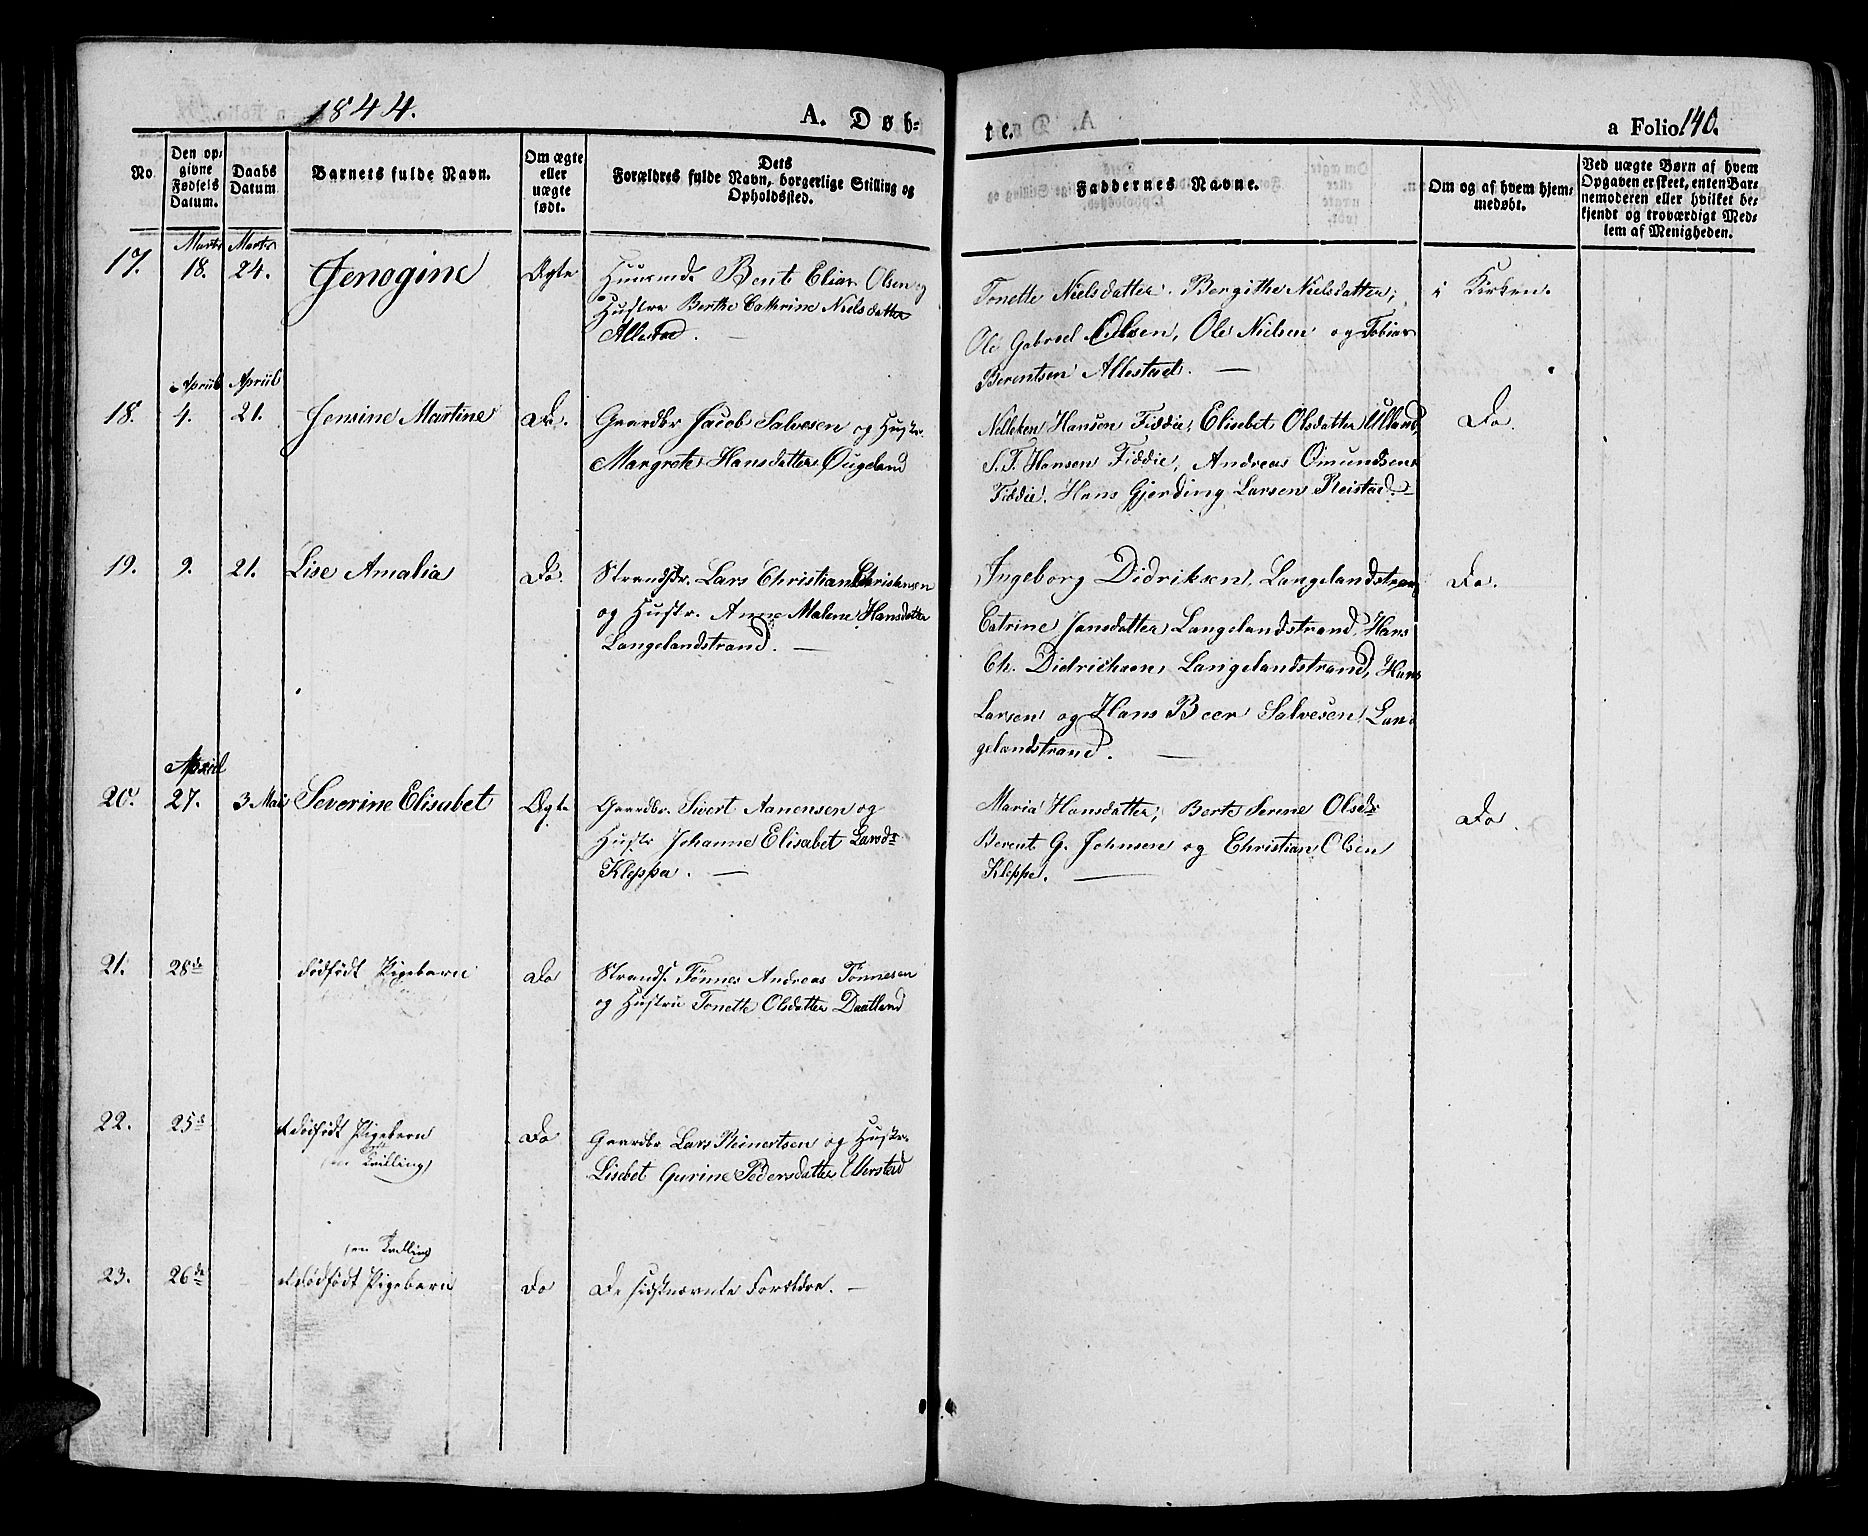 1844.
A. Døb-
te.
a Folio 140.
No.
Den op-
givne
Fødsels
Datum.
Daabs
Datum.
Barnets fulde Navn.
Om ægte
eller
uægte
født.
Dets
Forældres fulde Navn, borgerlige Stilling og
Opholdssted.
Faddernes Navne.
Om og af hvem hjem-
medøbt.
Ved uægte Børn af hvem
Opgaven er skeet, enten Bar-
nemoderen eller hvilket be-
kjendt og troværdigt Med-
lem af Menigheden.
Marts Marts
17. 18. 24. Jenogine Ægte Huusmd. Bent Elias Olsen og
Hustru Berthe Cathrine Nielsdatter
Allestad. —
Tonette Nielsdatter. Bergithe Nielsdatter,
Ole Gabriel Nilsen, Ole Nielsen og Tobias
Berentsen Allestad. —
i Kirken.
April April
18. 4. 21. Jensine Martine Do. Gaardbr Jacob Salvesen og Hustr.
Margrete Hansdatter Øugeland
Nilleken Hansen Fiddie, Elisebet Olsdatter Ulland,
S. T. Hansen Fiddie, Andreas Omundsen
Fiddie. Hans Gjerding Larsen Reistad. —
Do.
19. 9. 21. Lise Amalia Do. Strands. Lars Christian Christensen
og Hustr. Anne Malene Hansdatter
Langelandstrand. —
Ingeborg Didriksen, Langelandstrand
Catrine Jansdatter Langelandstrand, Hans
Ch. Didrichsen, Langelandstrand, Hans
Larsen og Hans Beer Salvesen Lan
gelandstrand. —
Do.
April
20. 27. 3 Mai Severine Elisabet Ægte Gaardbr. Sivert Aanensen og
Hustr Johanne Elisabet Larsdr
Kleppe. —
Maria Hansdatter, Berte Serine Olsdr
Berent G. Johnsen og Christian Olsen
Kleppe. —
Do.
21. 28de dødfødt Pigebarn Do Strands. Tønnes Andreas Tønnesen
og Hustru Tonette Olsdatter Daatland
22. 25d et dødfødt Pigebarn
(en Tvilling)
Do Gaardbr Lars Reinertsen og Hustr.
Lisebet Gurine Pedersdatter Ulerstad
(en Tvilling)
23. 26de et dødfødt Pigebarn Do De sidstnævnte Forældre. —